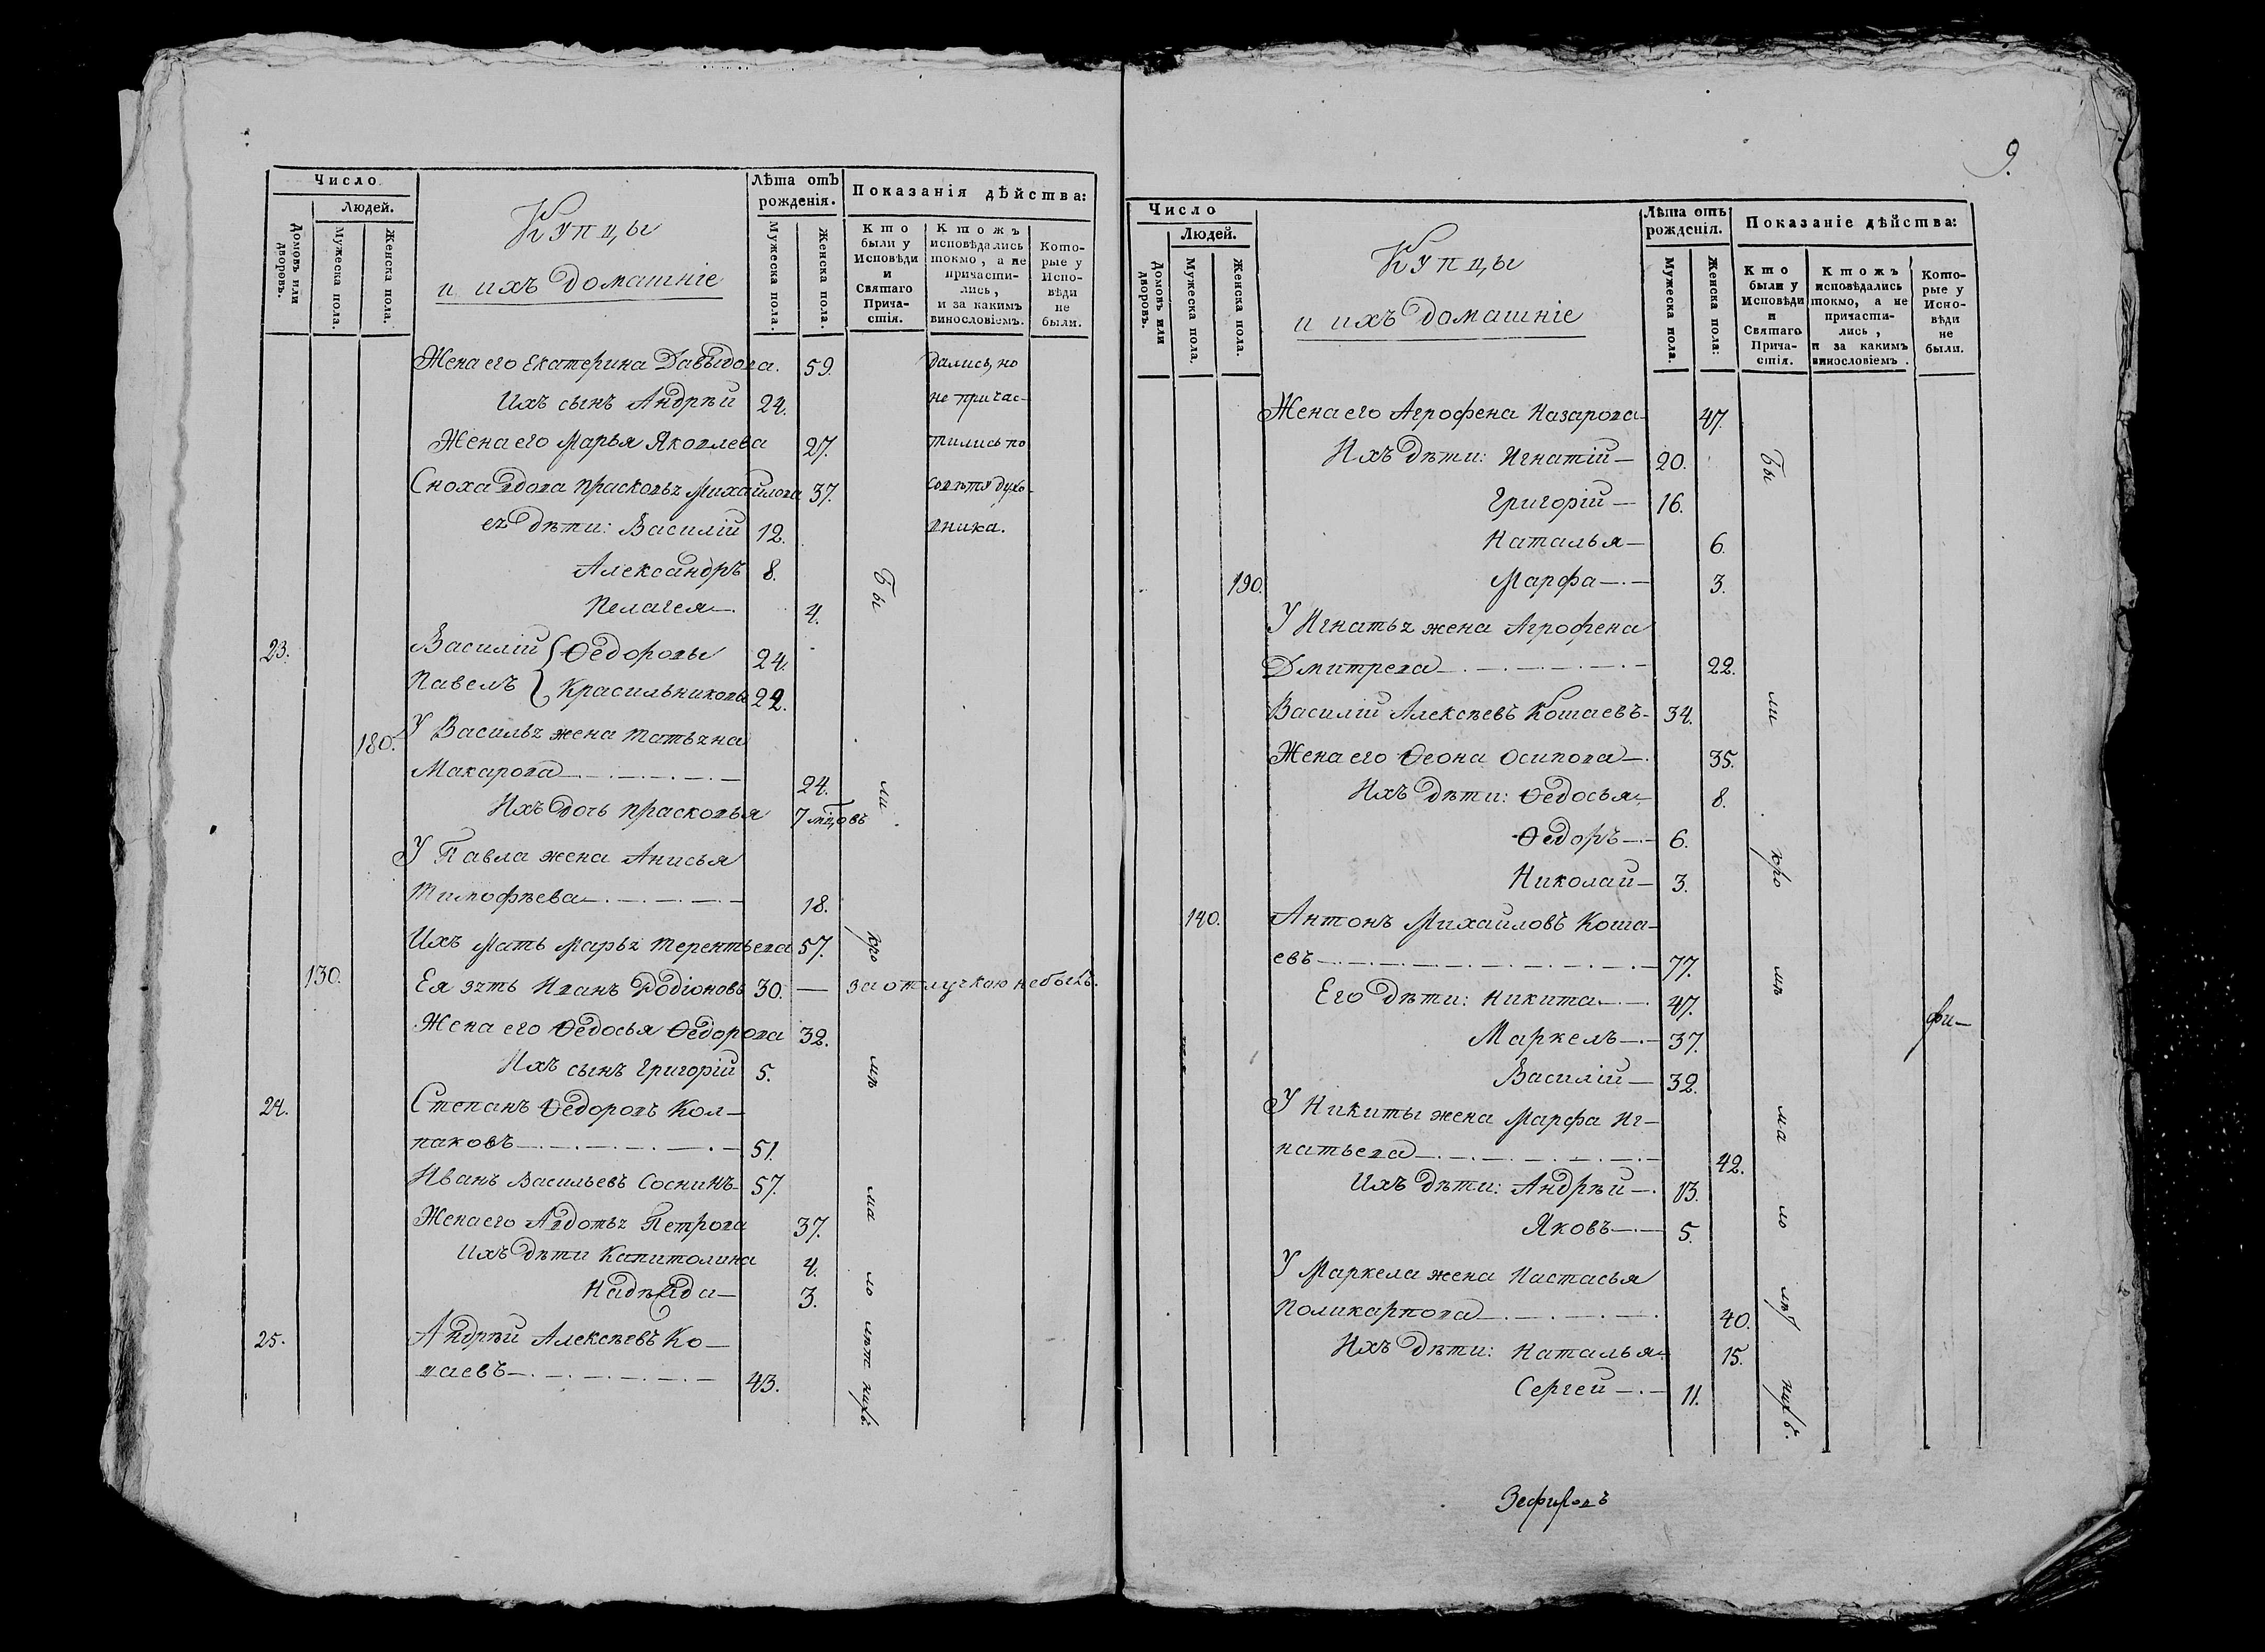 Число
Людей.
Домовъ или дворовъ.
Мужеска пола.
Женска пола.
Купцы
и ихъ домашніе
Лѣта отъ рожденія.
Мужеска пола.
Женска пола.
Показанія дѣйства:
Кто были у Исповѣди и Святаго Причастія.
Ктожъ исповѣдались токмо, а не причастились, и за какимъ винословіемъ.
Которые у Исповѣди не были.
Жена его Екатерина Давыдова. 59. дались, но
Ихъ сынъ Андрѣй 24. не причас-
Жена его Марья Яковлева 27. тились по
Сноха вдова Прасковья Михайлова 37. совѣту духо-
ея дѣти: Василій 12. вника.
Александръ 8.
Пелагея 4.
23. Василій Ѳедоровы 24.
Павелъ Красильниковы 22.
180. У Василья жена Татьяна
Макарова 24.
Ихъ дочь Прасковья 7 мцовъ
У Павла жена Анисья
Тимофѣева 18.
Ихъ мать Марья Терентьева 57.
130. Ея зять Иванъ Родіоновъ 30. — за отлучкою небылъ.
Жена его Ѳедосья Ѳедорова 32.
Ихъ сынъ Григорій 5.
24. Степанъ Ѳедоровъ Кол-
паковъ 51.
Иванъ Васильевъ Соснинъ 57.
Жена его Авдотья Петрова 37.
Ихъ дѣти Капитолина 4.
Надежда 3.
25. Андрѣй Алексѣевъ Ко-
шаевъ 43.
Бы ли кро мѣ ма ло лѣт нихъ.
9.
Число
Людей.
Домовъ или дворовъ.
Мужеска пола.
Женска пола.
Купцы
и ихъ домашніе
Лѣта отъ рожденія.
Мужеска пола.
Женска пола:
Показаніе дѣйства:
Кто были у Исповѣди и Святаго Причастія.
Ктожъ исповѣдались токмо, а не причастились, и за какимъ винословіемъ.
Которые у Исповѣди не были.
Жена его Агрофена Назарова 47.
Ихъ дѣти: Игнатій 20.
Григорій 16.
Наталья 6.
190. Марфа 3.
У Игнатья жена Агрофена
Дмитрева 22.
Василій Алексѣевъ Кошаевъ 34.
Жена его Ѳеона Осипова 35.
Ихъ дѣти: Ѳедосья 8.
Ѳедоръ 6.
Николай 3.
140. Антонъ Михайловъ Коша-
евъ 77.
Его дѣти: Никита 47.
Маркелъ 37.
Василій 32.
У Никиты жена Марфа Иг-
натьева 42.
Ихъ дѣти: Андрѣй 13.
Яковъ 5.
У Маркела жена Настасья
Поликарпова 40.
Ихъ дѣти: Наталья 15.
Сергей 11.
Бы ли кро мѣ ма ло лѣт нихъ.
фи-
Зефировъ